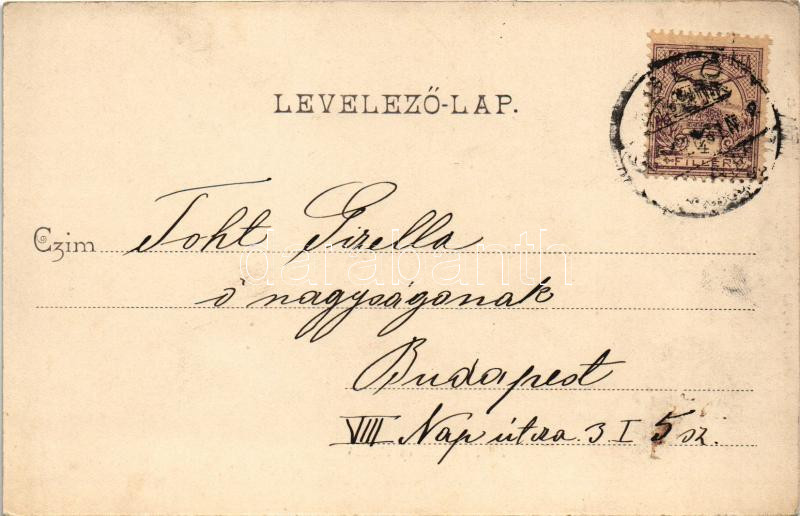 LEVELEZŐ-LAP.
FILLÉR
Czim Toht Gizella
ő nagyságonak
Budapest
VIII Nap útza 3 I 5 sz.
darabanth